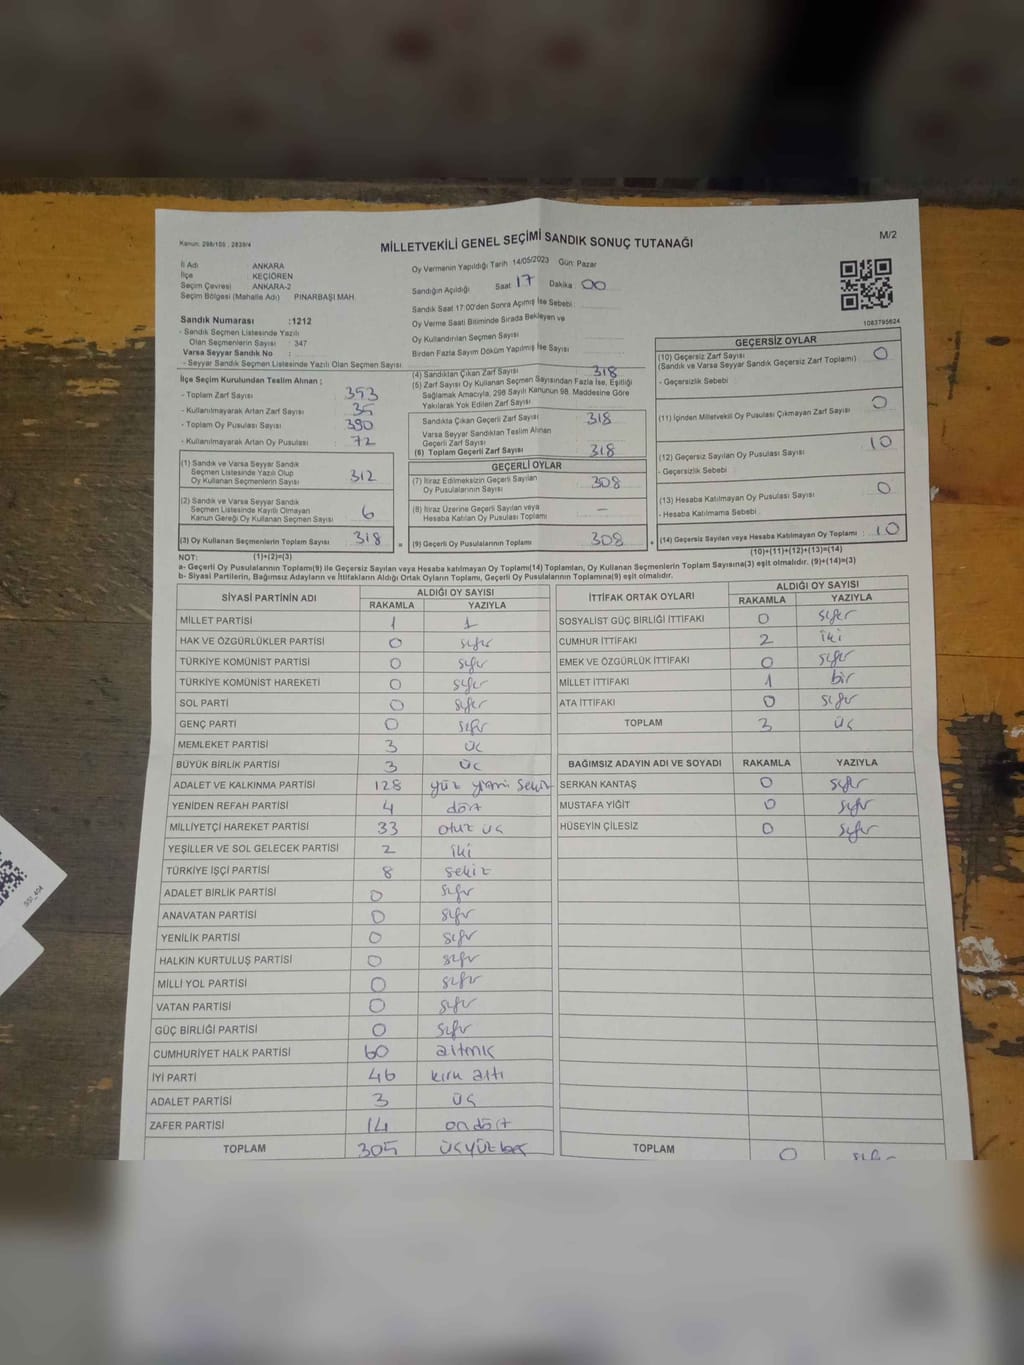 Kanun: 298/105 , 2839/4
MİLLETVEKİLİ GENEL SEÇİMİ SANDIK SONUÇ TUTANAĞI
M/2
İl Adı ANKARA
İlçe KEÇİÖREN
Seçim Çevresi ANKARA-2
Seçim Bölgesi (Mahalle Adı) PINARBAŞI MAH.
Oy Vermenin Yapıldığı Tarih 14/05/2023 Gün: Pazar
Sandığın Açıldığı Saat 17 Dakika 00
Sandık Saat 17:00'den Sonra Açılmış İse Sebebi
Oy Verme Saati Bitiminde Sırada Bekleyen ve
Oy Kullandırılan Seçmen Sayısı
Birden Fazla Sayım Döküm Yapılmış İse Sayısı
1083795624
Sandık Numarası :1212
- Sandık Seçmen Listesinde Yazılı
Olan Seçmenlerin Sayısı : 347
Varsa Seyyar Sandık No :
- Seyyar Sandık Seçmen Listesinde Yazılı Olan Seçmen Sayısı
İlçe Seçim Kurulundan Teslim Alınan ;
- Toplam Zarf Sayısı : 353
- Kullanılmayarak Artan Zarf Sayısı : 35
- Toplam Oy Pusulası Sayısı : 390
- Kullanılmayarak Artan Oy Pusulası : 72
(1) Sandık ve Varsa Seyyar Sandık
Seçmen Listesinde Yazılı Olup
Oy Kullanan Seçmenlerin Sayısı 312
(2) Sandık ve Varsa Seyyar Sandık
Seçmen Listesinde Kayıtlı Olmayan
Kanun Gereği Oy Kullanan Seçmen Sayısı 6
(3) Oy Kullanan Seçmenlerin Toplam Sayısı 318
(4) Sandıktan Çıkan Zarf Sayısı 318
(5) Zarf Sayısı Oy Kullanan Seçmen Sayısından Fazla İse, Eşitliği
Sağlamak Amacıyla, 298 Sayılı Kanunun 98. Maddesine Göre
Yakılarak Yok Edilen Zarf Sayısı
Sandıkta Çıkan Geçerli Zarf Sayısı 318
Varsa Seyyar Sandıktan Teslim Alınan
Geçerli Zarf Sayısı
(6) Toplam Geçerli Zarf Sayısı 318
GEÇERLİ OYLAR
(7) İtiraz Edilmeksizin Geçerli Sayılan
Oy Pusulalarının Sayısı 308
(8) İtiraz Üzerine Geçerli Sayılan veya
Hesaba Katılan Oy Pusulası Toplamı —
= (9) Geçerli Oy Pusulalarının Toplamı 308
GEÇERSİZ OYLAR
(10) Geçersiz Zarf Sayısı
(Sandık ve Varsa Seyyar Sandık Geçersiz Zarf Toplamı) 0
- Geçersizlik Sebebi
(11) İçinden Milletvekili Oy Pusulası Çıkmayan Zarf Sayısı 0
(12) Geçersiz Sayılan Oy Pusulası Sayısı 10
- Geçersizlik Sebebi
(13) Hesaba Katılmayan Oy Pusulası Sayısı 0
- Hesaba Katılmama Sebebi
+ (14) Geçersiz Sayılan veya Hesaba Katılmayan Oy Toplamı : 10
NOT: (1)+(2)=(3) (10)+(11)+(12)+(13)=(14)
a- Geçerli Oy Pusulasının Toplamı(9) ile Geçersiz Sayılan veya Hesaba katılmayan Oy Toplamı(14) Toplamları, Oy Kullanan Seçmenlerin Toplam Sayısına(3) eşit olmalıdır. (9)+(14)=(3)
b- Siyasi Partilerin, Bağımsız Adayların ve İttifakların Aldığı Ortak Oyların Toplamı, Geçerli Oy Pusulalarının Toplamına(9) eşit olmalıdır.
SİYASİ PARTİNİN ADI ALDIĞI OY SAYISI
RAKAMLA YAZIYLA
MİLLET PARTİSİ 1 1
HAK VE ÖZGÜRLÜKLER PARTİSİ 0 sıfır
TÜRKİYE KOMÜNİST PARTİSİ 0 sıfır
TÜRKİYE KOMÜNİST HAREKETİ 0 sıfır
SOL PARTİ 0 sıfır
GENÇ PARTİ 0 sıfır
MEMLEKET PARTİSİ 3 üç
BÜYÜK BİRLİK PARTİSİ 3 üç
ADALET VE KALKINMA PARTİSİ 128 yüz yirmi sekiz
YENİDEN REFAH PARTİSİ 4 dört
MİLLİYETÇİ HAREKET PARTİSİ 33 otuz üç
YEŞİLLER VE SOL GELECEK PARTİSİ 2 iki
TÜRKİYE İŞÇİ PARTİSİ 8 sekiz
ADALET BİRLİK PARTİSİ 0 sıfır
ANAVATAN PARTİSİ 0 sıfır
YENİLİK PARTİSİ 0 sıfır
HALKIN KURTULUŞ PARTİSİ 0 sıfır
MİLLİ YOL PARTİSİ 0 sıfır
VATAN PARTİSİ 0 sıfır
GÜÇ BİRLİĞİ PARTİSİ 0 sıfır
CUMHURİYET HALK PARTİSİ 60 altmış
İYİ PARTİ 46 kırk altı
ADALET PARTİSİ 3 üç
ZAFER PARTİSİ 14 ondört
TOPLAM 305 üçyüz beş
İTTİFAK ORTAK OYLARI ALDIĞI OY SAYISI
RAKAMLA YAZIYLA
SOSYALİST GÜÇ BİRLİĞİ İTTİFAKI 0 sıfır
CUMHUR İTTİFAKI 2 iki
EMEK VE ÖZGÜRLÜK İTTİFAKI 0 sıfır
MİLLET İTTİFAKI 1 bir
ATA İTTİFAKI 0 sıfır
TOPLAM 3 üç
BAĞIMSIZ ADAYIN ADI VE SOYADI RAKAMLA YAZIYLA
SERKAN KANTAŞ 0 sıfır
MUSTAFA YİĞİT 0 sıfır
HÜSEYİN ÇİLESİZ 0 sıfır
TOPLAM 0